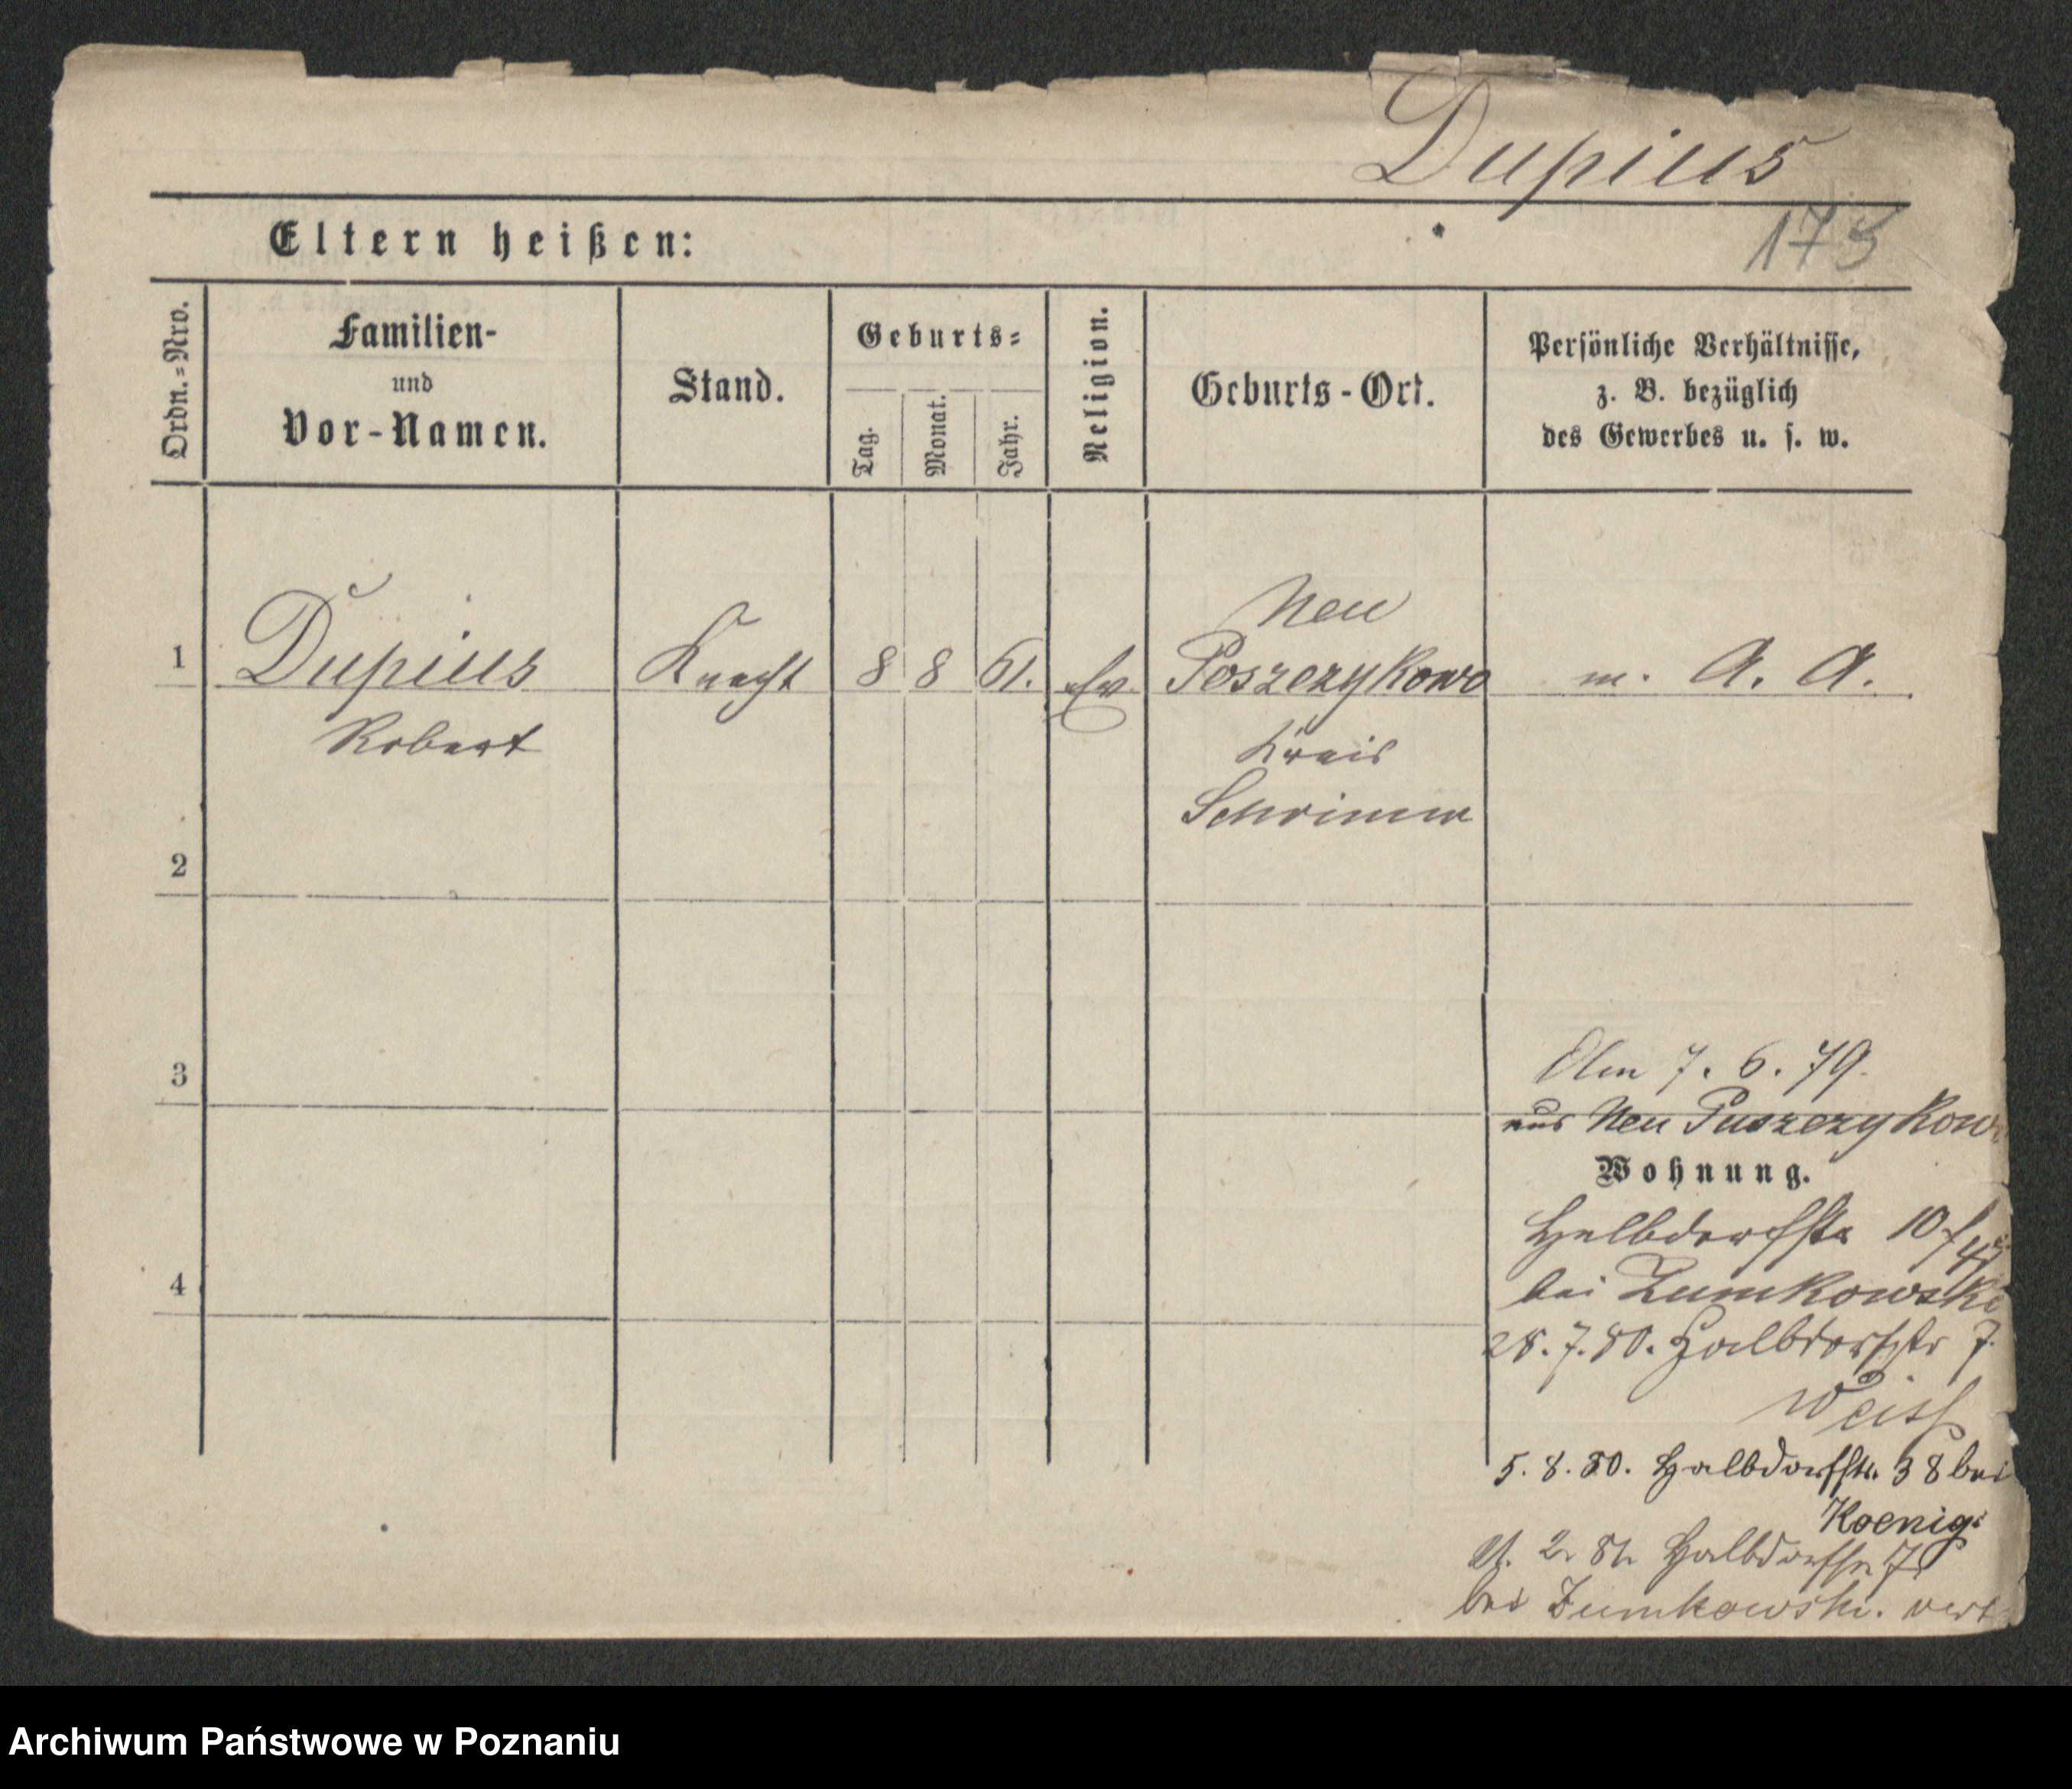 Dupius
173
Eltern heißen:
Ordn.=Nro.
Familien-
und
Vor-Namen.
Stand.
Geburts=
Tag.
Monat.
Jahr.
Religion.
Geburts-Ort.
Persönliche Verhältnisse,
z. B. bezüglich
des Gewerbes u. s. w.
Neu
1 Dupius Knecht 8 8 61. Ev. Poszczykowo m. A. A.
Robert
Kreis
Schrimm
2
3
7. 6. 79.
aus Neu Puszczykow
Wohnung.
4
Halbdorfstr 10
bei Zumkowski
28. 7. 80. Halbdorfstr 7.
Weiss
5. 8. 80. Halbdorfstr. 38 bei
Koenig.
2. 81. Halbdorfstr 7
bei Zumkowski.
Archiwum Państwowe w Poznaniu